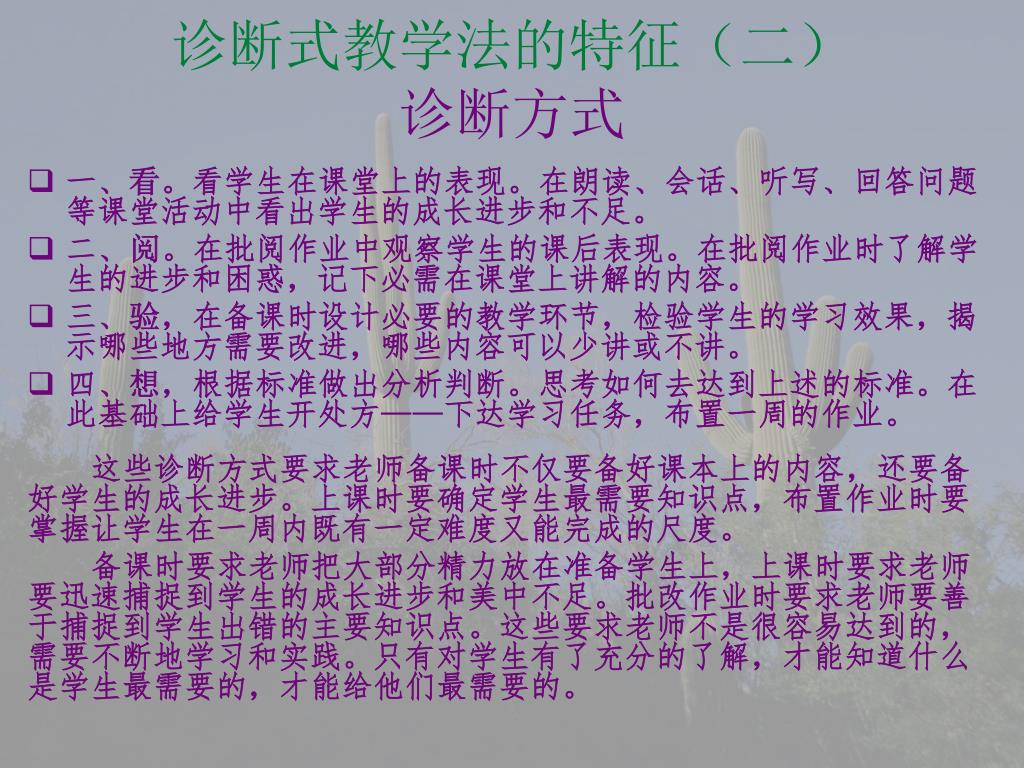 诊断式教学法的特征（二）
诊断方式
一、看。看学生在课堂上的表现。在朗读、会话、听写、回答问题
等课堂活动中看出学生的成长进步和不足。
二、阅。在批阅作业中观察学生的课后表现。在批阅作业时了解学
生的进步和困惑，记下必需在课堂上讲解的内容。
三、验，在备课时设计必要的教学环节，检验学生的学习效果，揭
示哪些地方需要改进，哪些内容可以少讲或不讲。
四、想，根据标准做出分析判断。思考如何去达到上述的标准。在
此基础上给学生开处方——下达学习任务，布置一周的作业。
这些诊断方式要求老师备课时不仅要备好课本上的内容，还要备
好学生的成长进步。上课时要确定学生最需要知识点，布置作业时要
掌握让学生在一周内既有一定难度又能完成的尺度。
备课时要求老师把大部分精力放在准备学生上，上课时要求老师
要迅速捕捉到学生的成长进步和美中不足。批改作业时要求老师要善
于捕捉到学生出错的主要知识点。这些要求老师不是很容易达到的，
需要不断地学习和实践。只有对学生有了充分的了解，才能知道什么
是学生最需要的，才能给他们最需要的。